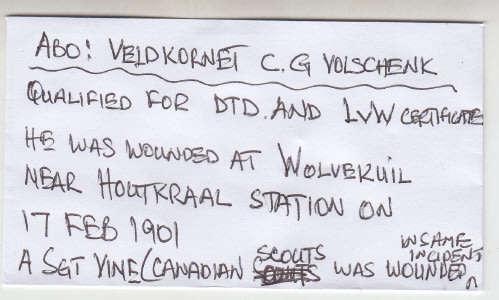 ABO: VELDKORNET C.G VOLSCHENK
QUALIFIED FOR DTD. AND LVW CERTIFICATE
HE WAS WOUNDED AT WOLVEKUIL
NEAR HOUTKRAAL STATION ON
17 FEB 1901
A SGT VINE (CANADIAN SCOUTS WAS WOUNDED IN SAME INCIDENT